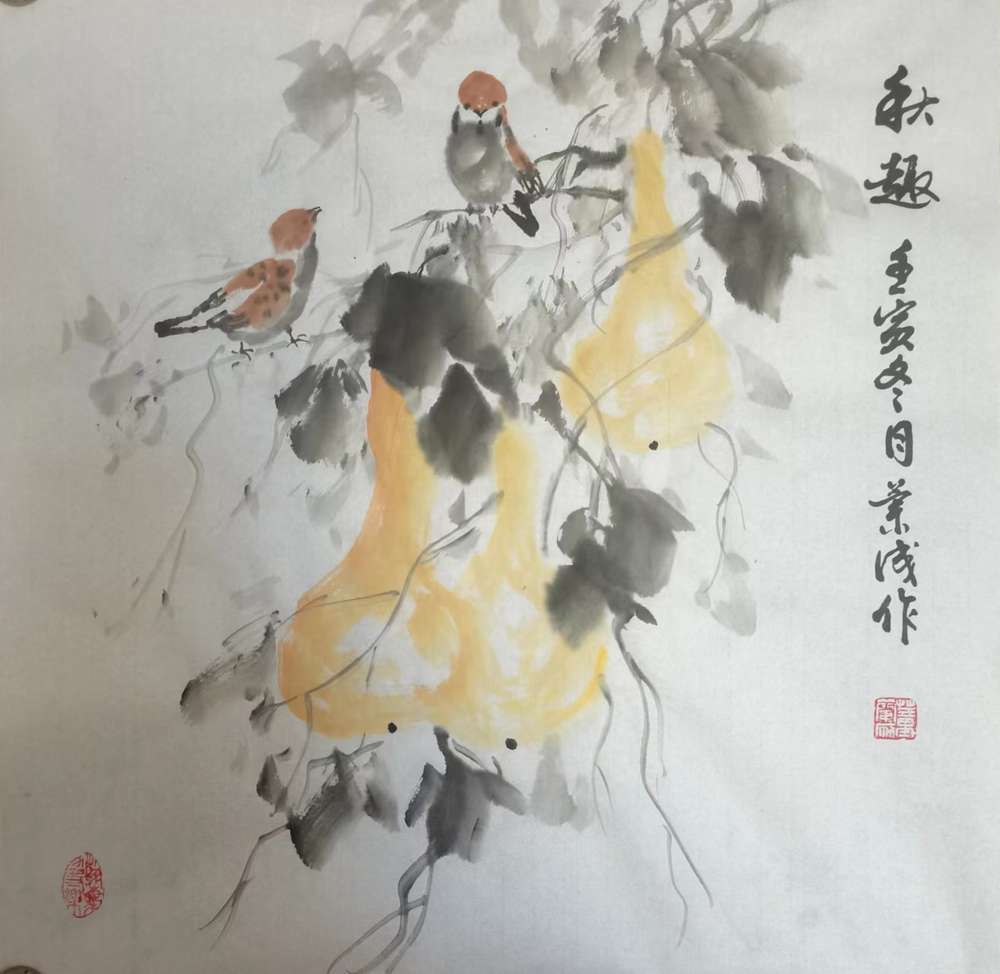 秋趣 壬寅冬月 业成作